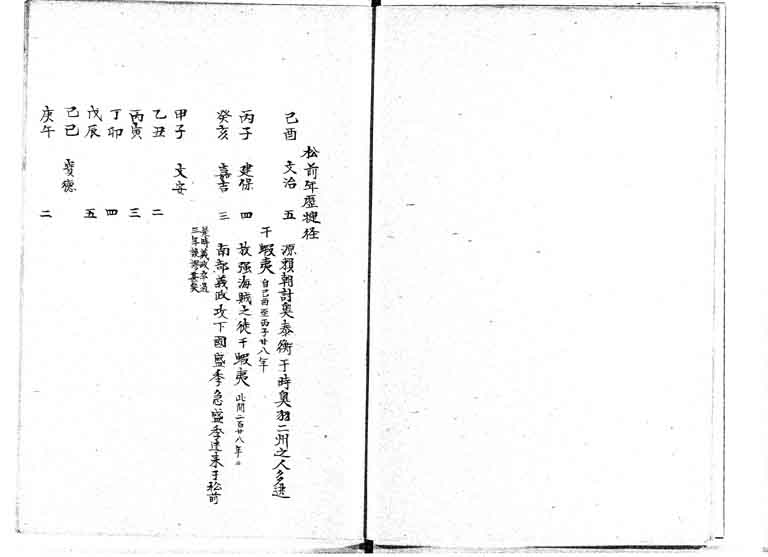 松前年歴捷径
己酉 文治 五 源頼朝討奥泰衡于時奥羽二州之人多逃
于蝦夷 自己酉至丙子廿八年
丙子 建保 四 放强海賊之徒于蝦夷 此間二百廿八年
癸亥 嘉吉 三 南部義政攻下國盛季急盛季逃来于松前
是時義政
三年
甲子 文安
乙丑 二
丙寅 三
丁卯 四
戊辰 五
己巳 寳徳
庚午 二